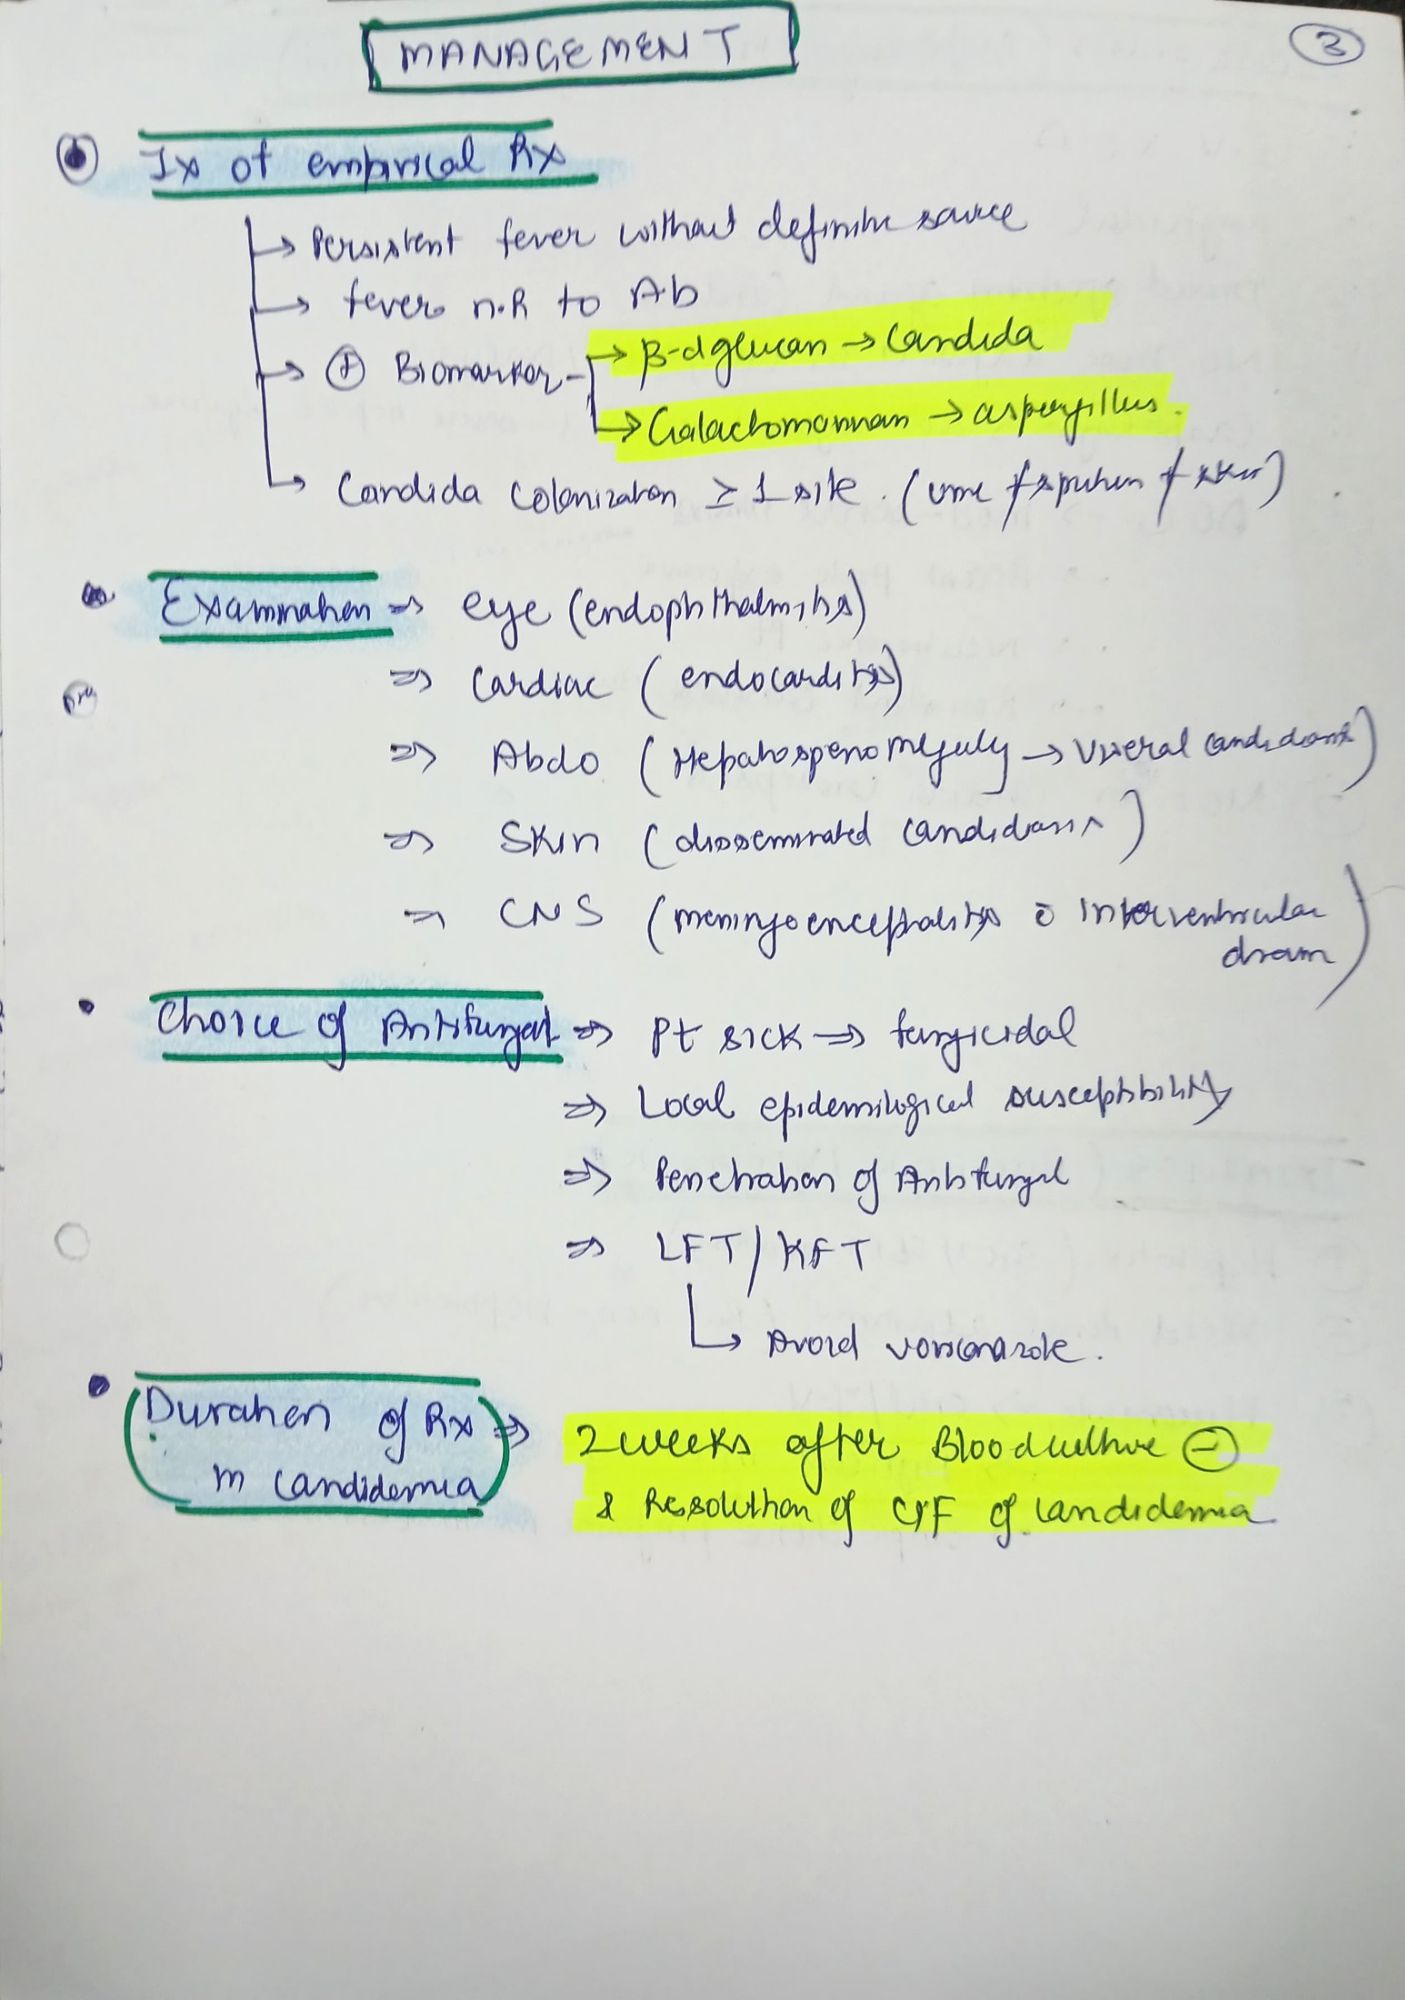 MANAGEMENT
3
Ix of empirical Rx
Persistent fever without definite source
fever n.R to Ab
⊕ Biomarker
β-d glucan → Candida
Galactomannan → aspergillus.
Candida Colonization ≥ 1 site. (urine / sputum / skin)
Examination ⇒ eye (endophthalmitis)
⇒ Cardiac (endocarditis)
⇒ Abdo (Hepatospenomegaly → Visceral candidiasis)
⇒ Skin (disseminated candidiasis)
⇒ CNS (meningoencephalitis c̄ interventricular
drain)
Choice of Antifungal ⇒ Pt sick ⇒ fungicidal
⇒ Local epidemilogical susceptibility
⇒ Penetration of Antifungal
⇒ LFT/KFT
Avoid voriconazole.
Duration of Rx ⇒ 2 weeks after Blood culture ⊖
in candidemia & Resolution of C/F of candidemia